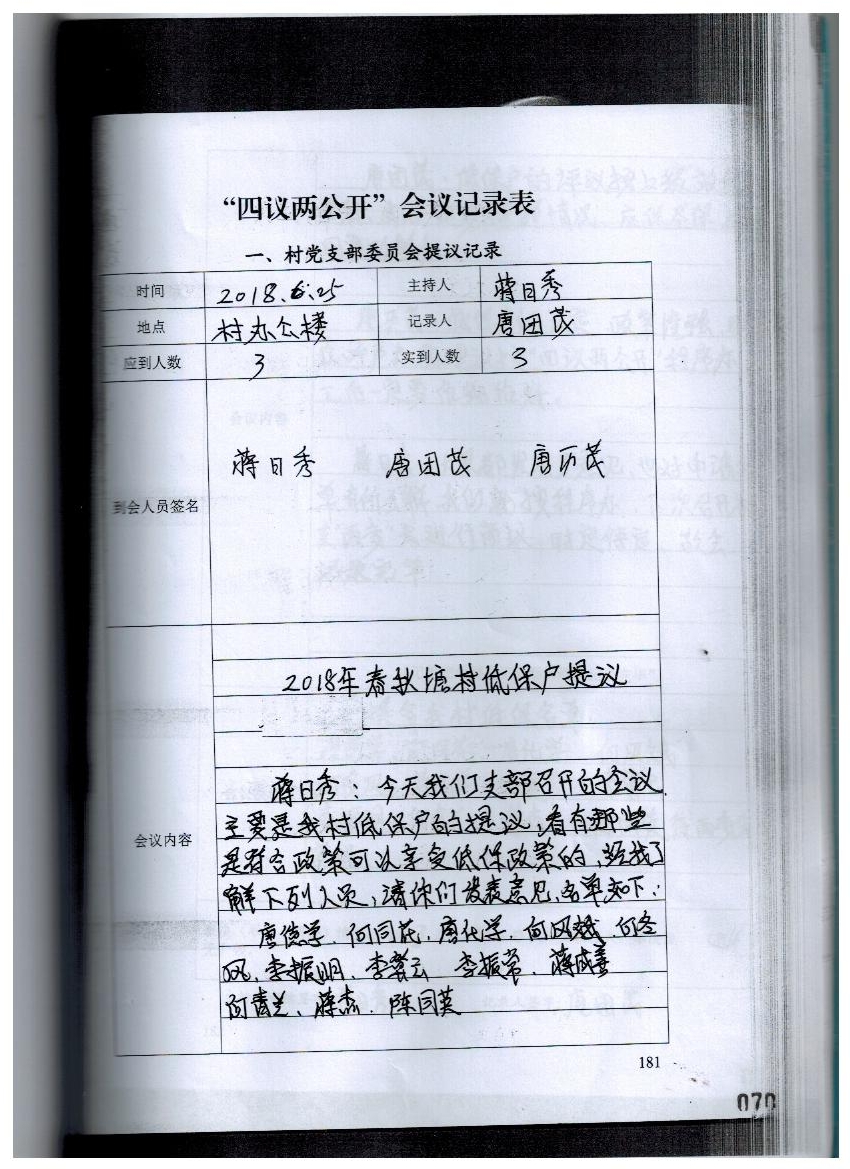 “四议两公开”会议记录表
一、村党支部委员会提议记录
时间 2018.6.25 主持人 蒋日秀
地点 村办公楼 记录人 唐田茂
应到人数 3 实到人数 3
到会人员签名 蒋日秀 唐田茂 唐历茂
会议内容
2018年春秋塘村低保户提议
蒋日秀：今天我们支部召开的会议
主要是我村低保户的提议，看有那些
是符合政策可以享受低保政策的，经我了
解下列人员，请你们发表意见，名单如下：
唐德学、何同花、唐化学、向凤娥、何冬
风、李振明、李翠云 李振常、蒋成善
何青兰、蒋杰、陈同英
181
070